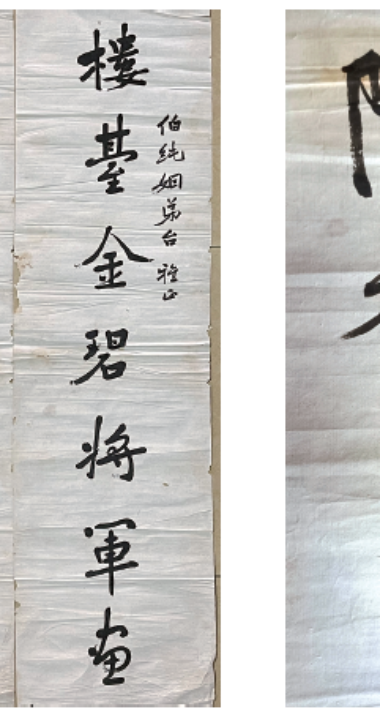 樓臺金碧將軍畫
伯純姻弟台 雅正